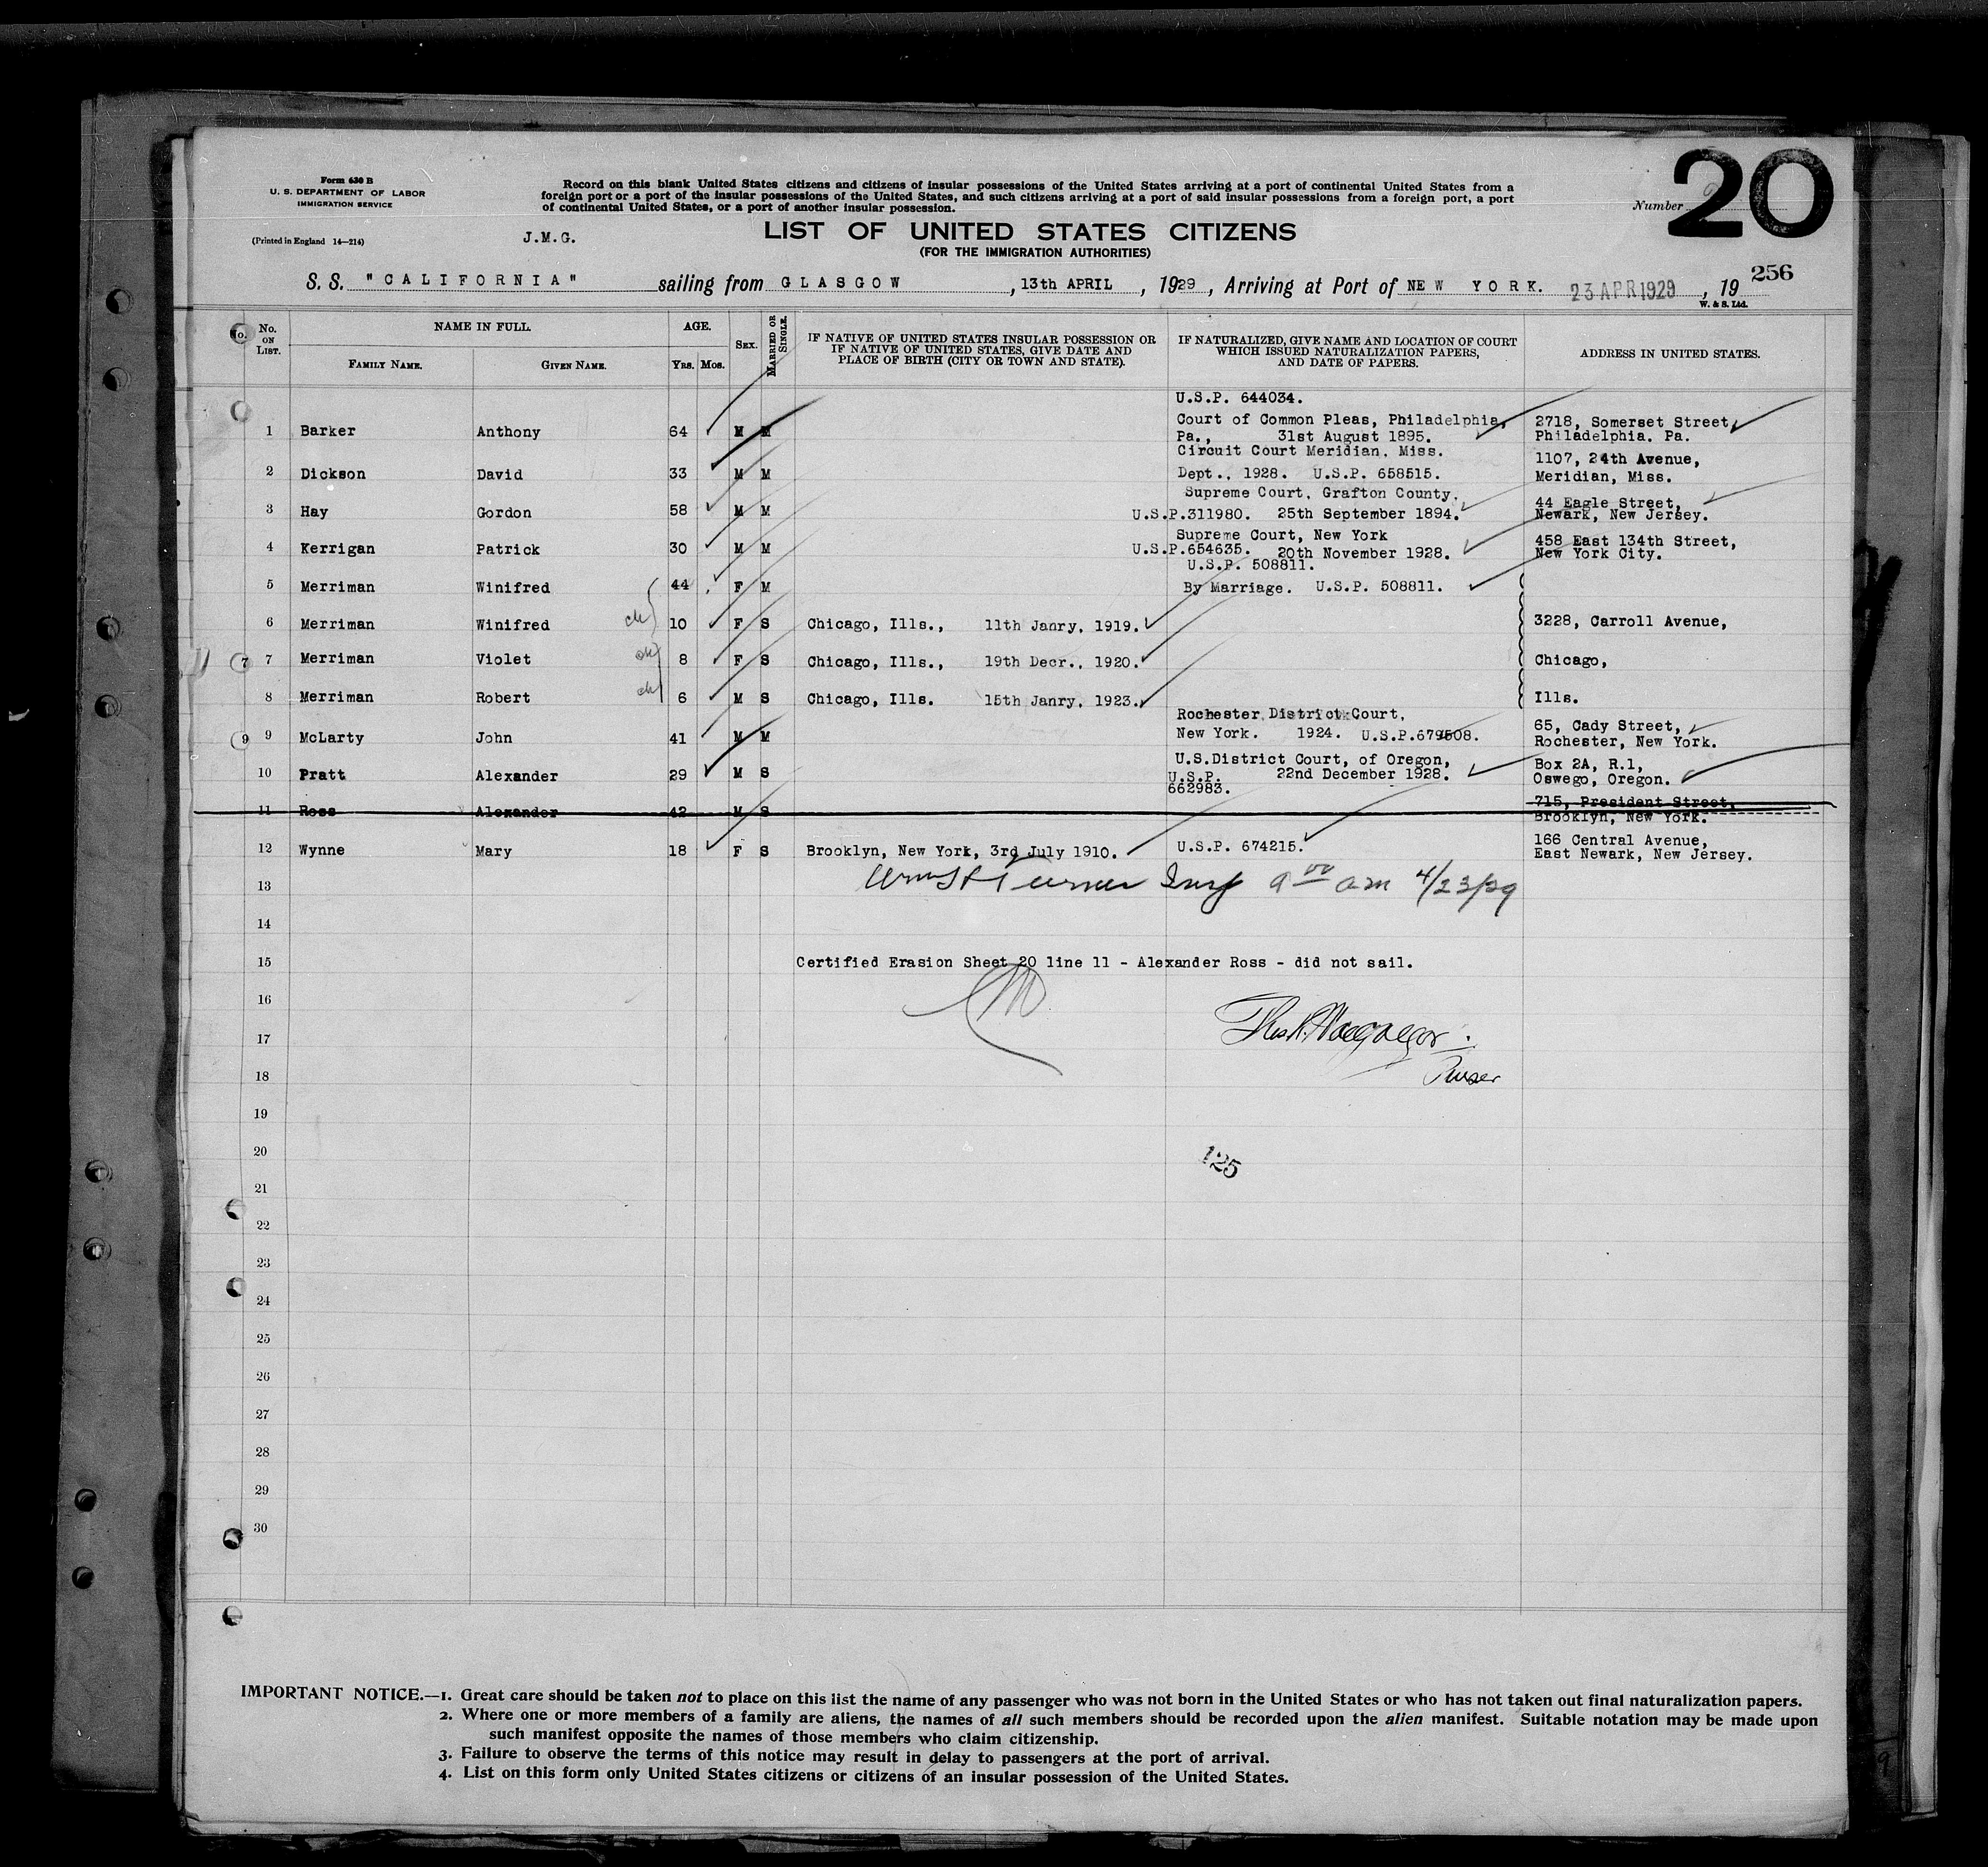 20
Form 630 B
U. S. DEPARTMENT OF LABOR
IMMIGRATION SERVICE
(Printed in England 14—214)
J.M.G.
Record on this blank United States citizens and citizens of insular possessions of the United States arriving at a port of continental United States from a
foreign port or a port of the insular possessions of the United States, and such citizens arriving at a port of said insular possessions from a foreign port, a port
of continental United States, or a port of another insular possession.
Number
LIST OF UNITED STATES CITIZENS
(FOR THE IMMIGRATION AUTHORITIES)
256
S. S. "CALIFORNIA" sailing from GLASGOW, 13th APRIL, 1929, Arriving at Port of NEW YORK. 23 APR 1929, 19
W. & S. Ltd.
No. ON LIST.
NAME IN FULL.
FAMILY NAME. GIVEN NAME.
AGE.
YRS. MOS.
SEX.
MARRIED OR SINGLE.
IF NATIVE OF UNITED STATES INSULAR POSSESSION OR
IF NATIVE OF UNITED STATES, GIVE DATE AND
PLACE OF BIRTH (CITY OR TOWN AND STATE).
IF NATURALIZED, GIVE NAME AND LOCATION OF COURT
WHICH ISSUED NATURALIZATION PAPERS,
AND DATE OF PAPERS.
ADDRESS IN UNITED STATES.
U.S.P. 644034.
Court of Common Pleas, Philadelphia, 2718, Somerset Street,
1 Barker Anthony 64 M M Pa., 31st August 1895. Philadelphia. Pa.
Circuit Court Meridian, Miss. 1107, 24th Avenue,
2 Dickson David 33 M M Dept., 1928. U.S.P. 658515. Meridian, Miss.
Supreme Court, Grafton County, 44 Eagle Street,
3 Hay Gordon 58 M M U.S.P.311980. 25th September 1894. Newark, New Jersey.
Supreme Court, New York 458 East 134th Street,
4 Kerrigan Patrick 30 M M U.S.P.654635. 20th November 1928. New York City.
U.S.P. 508811.
5 Merriman Winifred 44 F M By Marriage. U.S.P. 508811.
6 Merriman Winifred ck 10 F S Chicago, Ills., 11th Janry, 1919. 3228, Carroll Avenue,
7 7 Merriman Violet ok 8 F S Chicago, Ills., 19th Decr., 1920. Chicago,
8 Merriman Robert ck 6 M S Chicago, Ills. 15th Janry, 1923. Ills.
Rochester District Court, 65, Cady Street,
9 9 McLarty John 41 M M New York. 1924. U.S.P.679508. Rochester, New York.
U.S.District Court, of Oregon, Box 2A, R.1,
10 Pratt Alexander 29 M S U.S.P. 22nd December 1928. Oswego, Oregon.
662983.
715, President Street,
11 Ross Alexander 42 M S Brooklyn, New York.
166 Central Avenue,
12 Wynne Mary 18 F S Brooklyn, New York, 3rd July 1910. U.S.P. 674215. East Newark, New Jersey.
13 Turner Insp 9 00 am 4/23/29
14
15 Certified Erasion Sheet 20 line 11 - Alexander Ross - did not sail.
16
17 Macgregor.
18 Purser
19
20
125
21
22
23
24
25
26
27
28
29
30
IMPORTANT NOTICE.—1. Great care should be taken not to place on this list the name of any passenger who was not born in the United States or who has not taken out final naturalization papers.
2. Where one or more members of a family are aliens, the names of all such members should be recorded upon the alien manifest. Suitable notation may be made upon
such manifest opposite the names of those members who claim citizenship.
3. Failure to observe the terms of this notice may result in delay to passengers at the port of arrival.
4. List on this form only United States citizens or citizens of an insular possession of the United States.